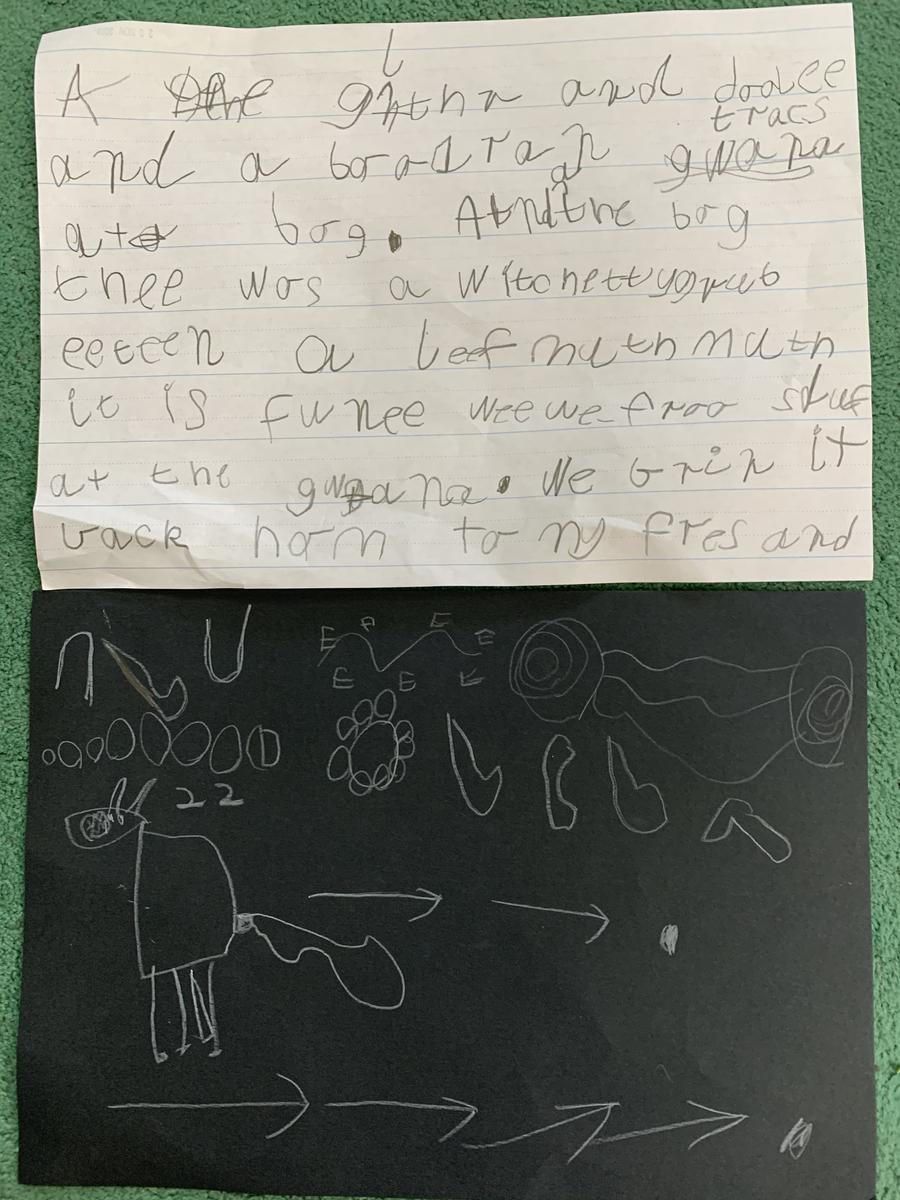 A the ghthn and doolee
tracs
and a bord ran gwana
at a bog. And the bog
thee wos a witchettygrub
eeteen a leef muthmuth
it is funee wee we froo stuf
at the gwana. We brin it
back hom to my fres and
E A E E
E E E
22